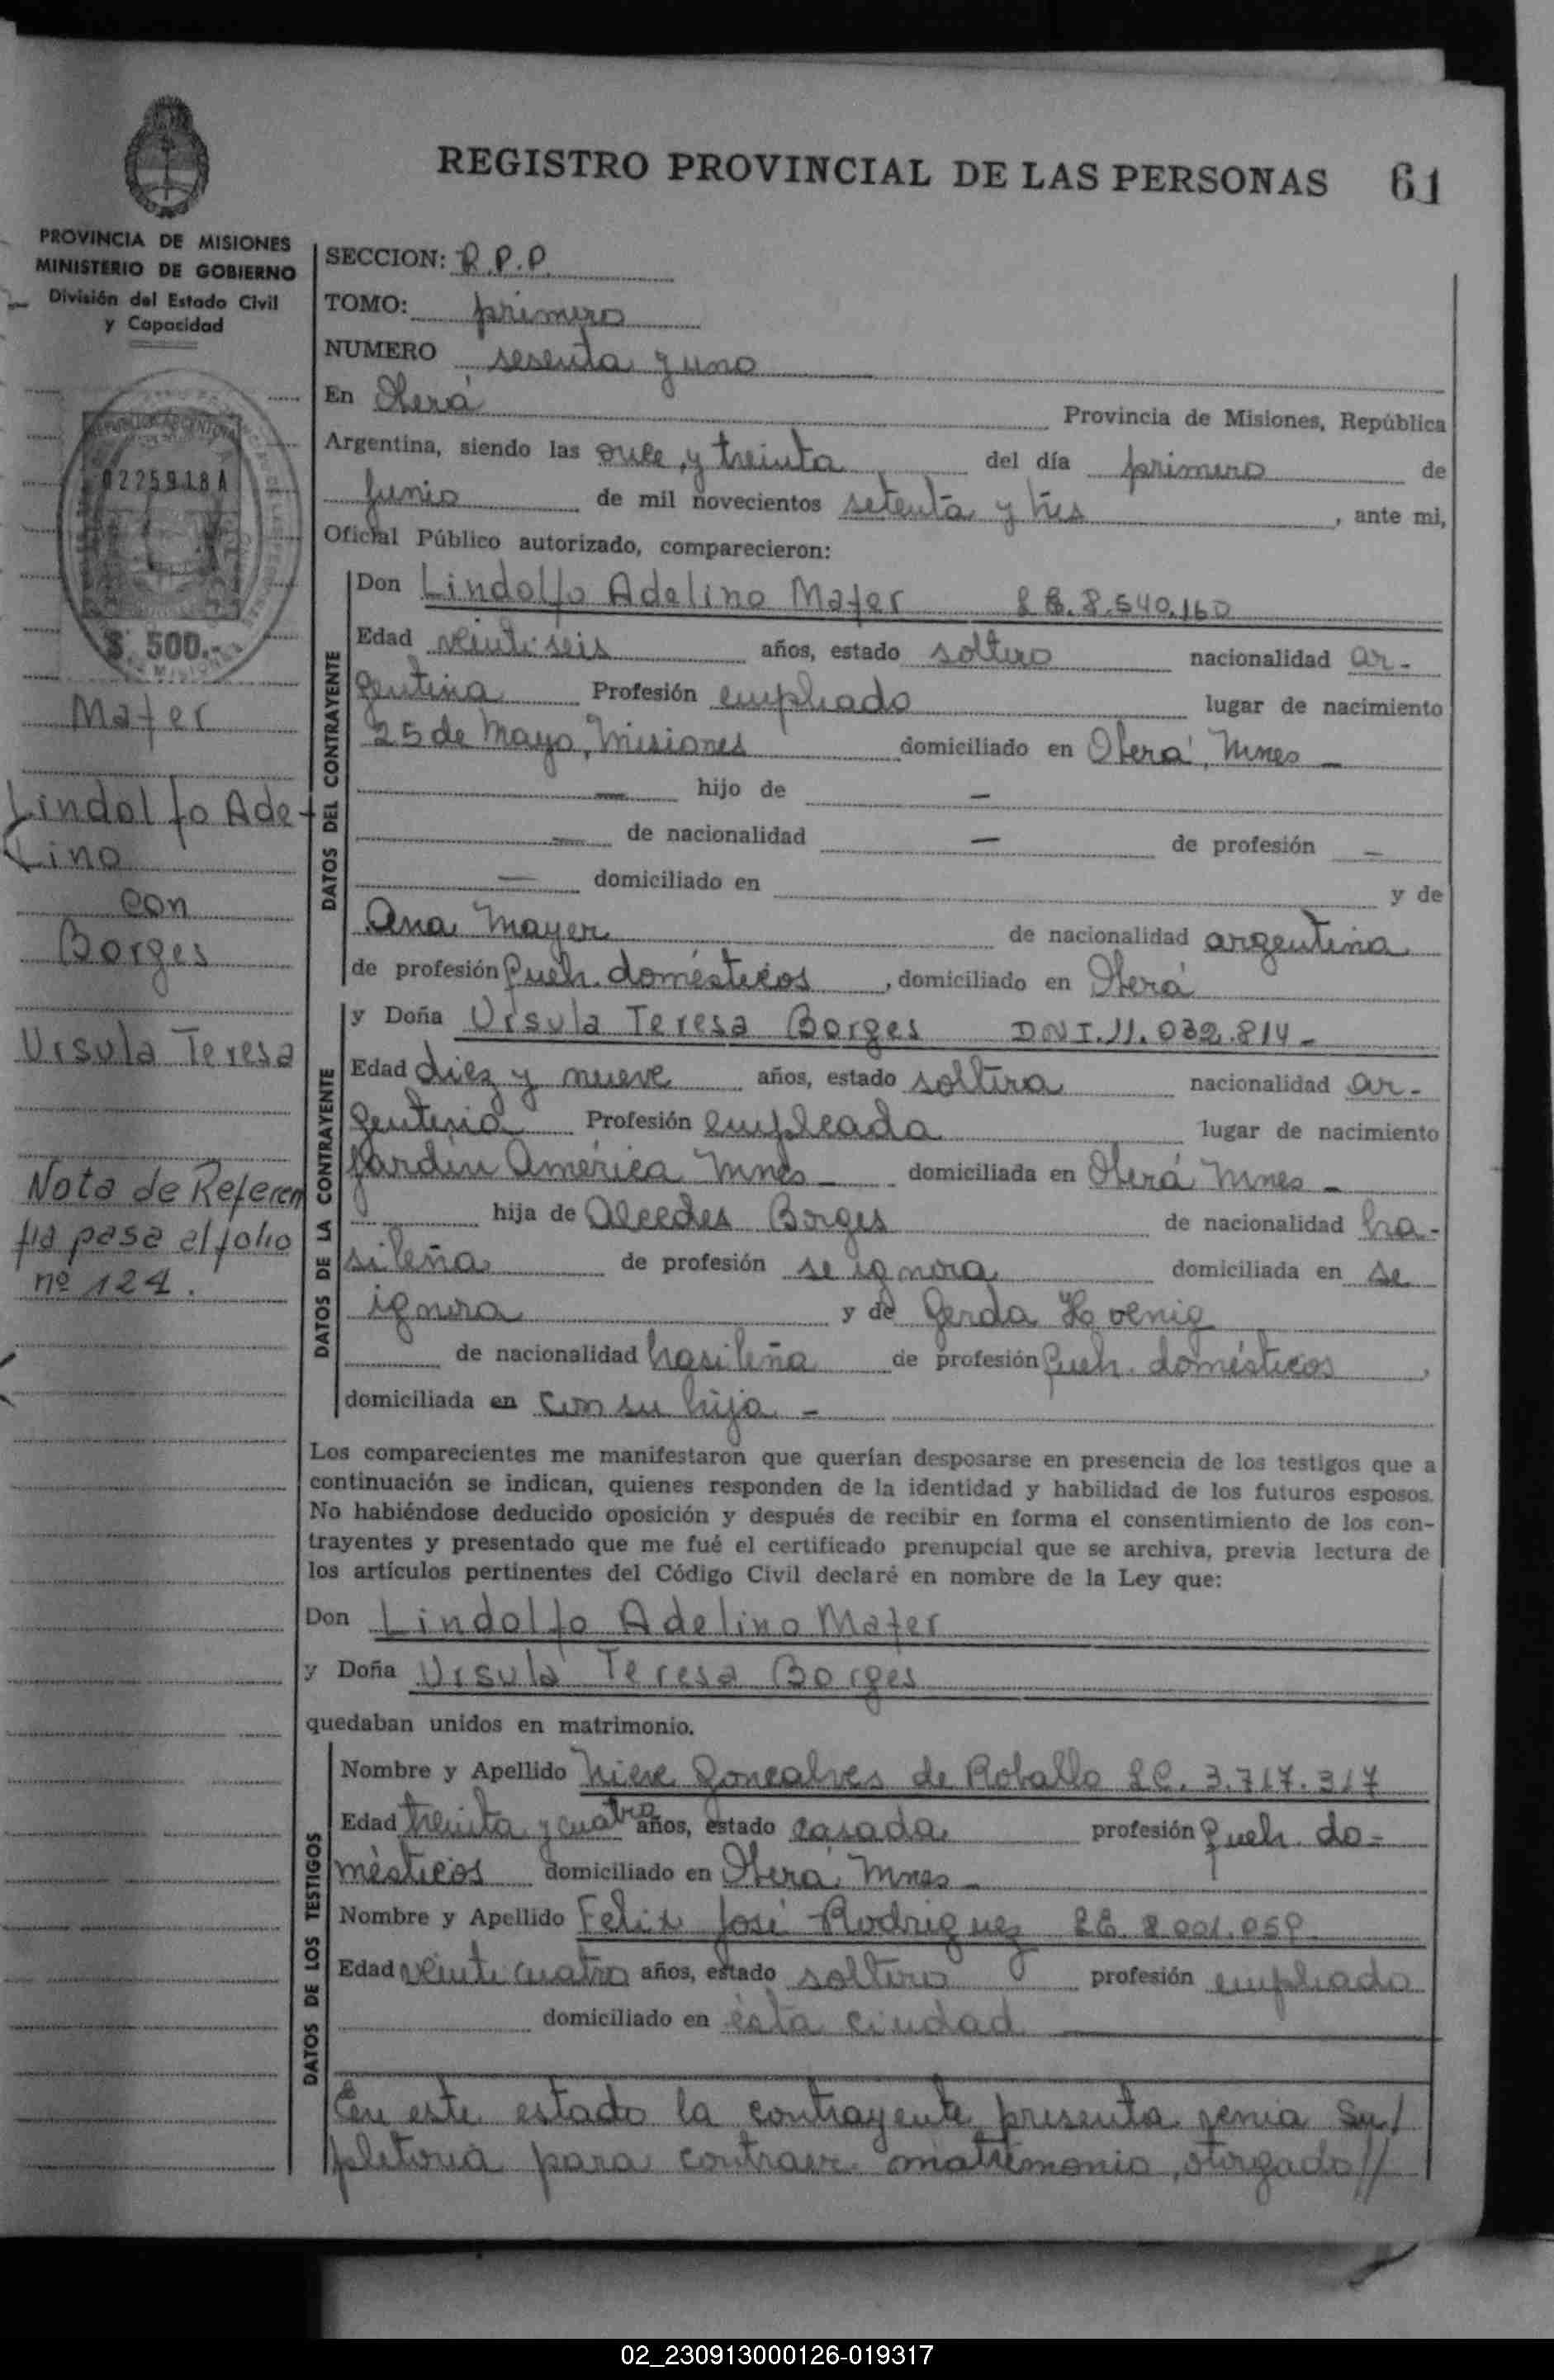 REGISTRO PROVINCIAL DE LAS PERSONAS 61
PROVINCIA DE MISIONES
MINISTERIO DE GOBIERNO
División del Estado Civil
y Capacidad
0225918A
$ 500.-
Mayer
Lindolfo Ade-
lino
con
Borges
Ursula Teresa
Nota de Referen
cia pasa al folio
nº 124.
SECCION: R.P.P.
TOMO: primero
NUMERO sesenta y uno
En Oberá Provincia de Misiones, República
Argentina, siendo las once y treinta del día primero de
Junio de mil novecientos setenta y tres, ante mi,
Oficial Público autorizado, comparecieron:
DATOS DEL CONTRAYENTE
Don Lindolfo Adelino Mayer L.E. 8.540.160
Edad veinti seis años, estado soltero nacionalidad ar-
gentina Profesión empleado lugar de nacimiento
25 de Mayo, Misiones domiciliado en Oberá, Mnes -
— hijo de —
— de nacionalidad — de profesión —
— domiciliado en y de
Ana Mayer de nacionalidad argentina
de profesión Queh. domésticos, domiciliado en Oberá
DATOS DE LA CONTRAYENTE
y Doña Ursula Teresa Borges DNI. 11.032.814-
Edad diez y nueve años, estado soltera nacionalidad ar-
gentina Profesión empleada lugar de nacimiento
Jardín América Mnes - domiciliada en Oberá Mnes -
hija de Alcedes Borges de nacionalidad bra-
sileña de profesión se ignora domiciliada en se
ignora y de Gerda Hoenig
de nacionalidad brasileña de profesión Queh. domésticos,
domiciliada en con su hija -
Los comparecientes me manifestaron que querían desposarse en presencia de los testigos que a
continuación se indican, quienes responden de la identidad y habilidad de los futuros esposos.
No habiéndose deducido oposición y después de recibir en forma el consentimiento de los con-
trayentes y presentado que me fué el certificado prenupcial que se archiva, previa lectura de
los artículos pertinentes del Código Civil declaré en nombre de la Ley que:
Don Lindolfo Adelino Mayer
y Doña Ursula Teresa Borges
quedaban unidos en matrimonio.
DATOS DE LOS TESTIGOS
Nombre y Apellido Goncalves de Roballo L.C. 3.717.317
Edad treinta y cuatro años, estado casada profesión Queh. do-
mésticos domiciliado en Oberá Mnes -
Nombre y Apellido Felix José Rodriguez L.E.
Edad veinti cuatro años, estado soltero profesión empleado
domiciliado en ésta ciudad
En este estado la contrayente presenta venia su/
pletoria para contraer matrimonio, otorgado//
02_230913000126-019317